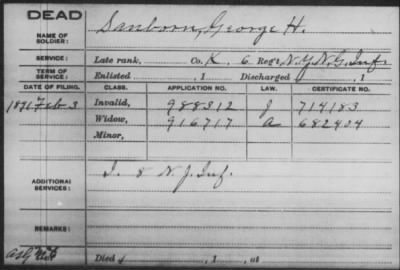 DEAD
NAME OF SOLDIER: Sanborn, George H.
SERVICE: Late rank, Co. K. 6 Regt. N.Y.N.G. Inf.
TERM OF SERVICE: Enlisted , 1 Discharged , 1
DATE OF FILING. CLASS. APPLICATION NO. LAW. CERTIFICATE NO.
1891 Feb 3 Invalid, 988312 J 714183
Widow, 916717 A 682404
Minor,
ADDITIONAL SERVICES: I. 8 N.J. Inf.
REMARKS:
Died , 1 , at